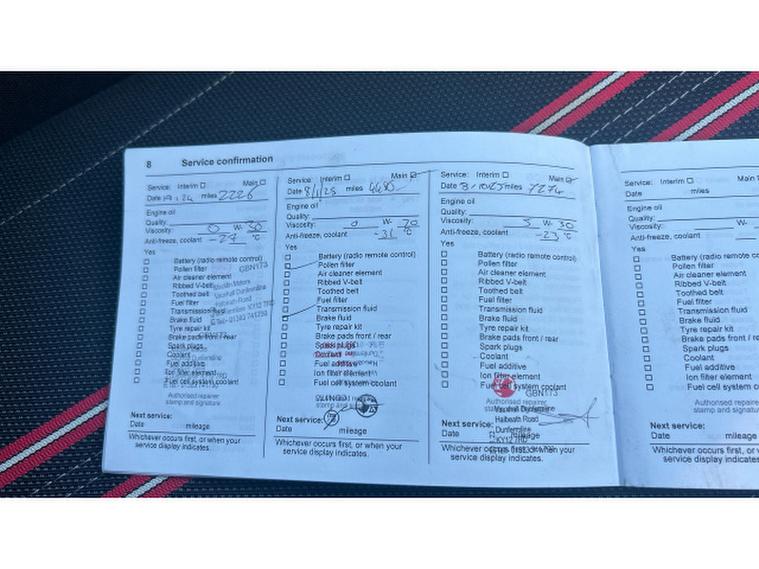 8 Service confirmation
Service: Interim ☐ Main ☐
Date miles 2226
Engine oil
Quality:
Viscosity: 0 W- 30
Anti-freeze, coolant -27 °C
Yes
☐ Battery (radio remote control)
☐ Pollen filter GBN173
☐ Air cleaner element
☐ Ribbed V-belt
☐ Toothed belt Vauxhall Dunfermline
☐ Fuel filter Halbeath Road
☐ Transmission fluid KY12 7RD
☐ Brake fluid
☐ Tyre repair kit
☐ Brake pads front / rear
☐ Spark plugs
☐ Coolant
☐ Fuel additive
☐ Ion filter element
☐ Fuel cell system coolant
Authorised repairer
stamp and signature
Next service:
Date mileage
Whichever occurs first, or when your
service display indicates.
Service: Interim ☐ Main ☑
Date miles
Engine oil
Quality:
Viscosity: 0 W- 20
Anti-freeze, coolant -31 °C
Yes
☐ Battery (radio remote control)
☐ Pollen filter
☐ Air cleaner element
☐ Ribbed V-belt
☐ Toothed belt
☐ Fuel filter
☐ Transmission fluid
☐ Brake fluid
☐ Tyre repair kit
☐ Brake pads front / rear
☐ Spark plugs
☐ Coolant
☐ Fuel additive
☐ Ion filter element
☐ Fuel cell system coolant
Next service:
Date mileage
Whichever occurs first, or when your
service display indicates.
Service: Interim ☐ Main ☑
Date miles 7274
Engine oil
Quality:
Viscosity: 5 W- 30
Anti-freeze, coolant -23 °C
Yes
☐ Battery (radio remote control)
☐ Pollen filter
☐ Air cleaner element
☐ Ribbed V-belt
☐ Toothed belt
☐ Fuel filter
☐ Transmission fluid
☐ Brake fluid
☐ Tyre repair kit
☐ Brake pads front / rear
☐ Spark plugs
☐ Coolant
☐ Fuel additive
☐ Ion filter element
☐ Fuel cell system coolant
GBN173
Authorised repairer
stamp and signature
Vauxhall Dunfermline
Halbeath Road
Dunfermline
KY12 7RD
Next service:
Date mileage
Whichever occurs first, or when your
service display indicates.
Service: Interim ☐
Date miles
Engine oil
Quality:
Viscosity: W-
Anti-freeze, coolant
Yes
☐ Battery (radio remote
☐ Pollen filter
☐ Air cleaner element
☐ Ribbed V-belt
☐ Toothed belt
☐ Fuel filter
☐ Transmission fluid
☐ Brake fluid
☐ Tyre repair kit
☐ Brake pads front /
☐ Spark plugs
☐ Coolant
☐ Fuel additive
☐ Ion filter element
☐ Fuel cell system c
Authorised repairer
stamp and signat
Next service:
Date mileage
Whichever occurs first, o
service display indicates